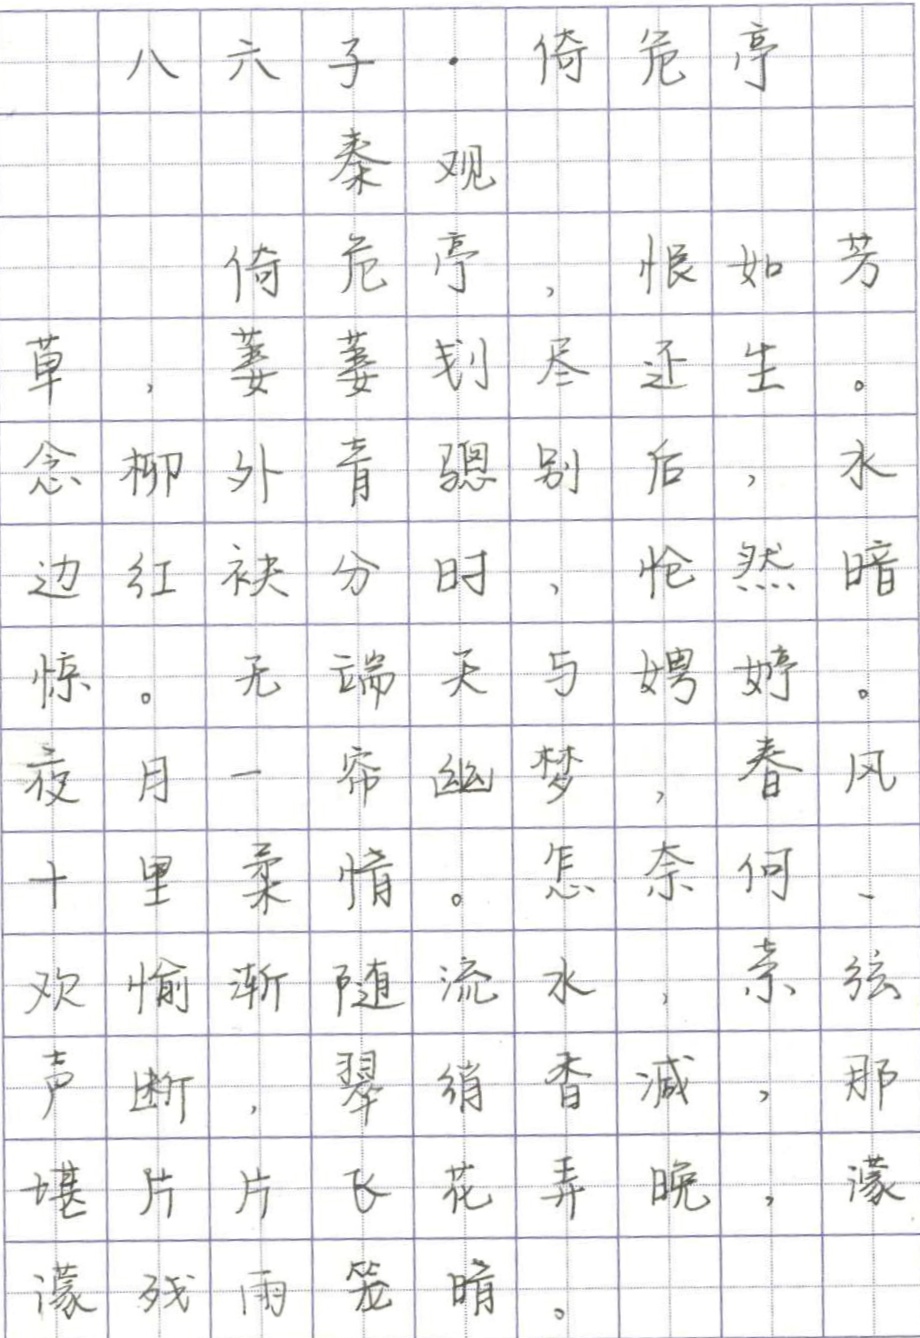 八六子·倚危亭
秦观
倚危亭,恨如芳
草,萋萋刬尽还生。
念柳外青骢别后,水
边红袂分时,怆然暗
惊。无端天与娉婷。
夜月一帘幽梦,春风
十里柔情。怎奈何、
欢愉渐随流水,素弦
声断,翠绡香减,那
堪片片飞花弄晚,濛
濛残雨笼晴。